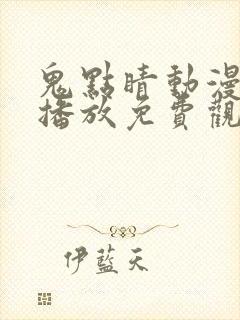 鬼點睛動漫
播放免費觀
伊藍天